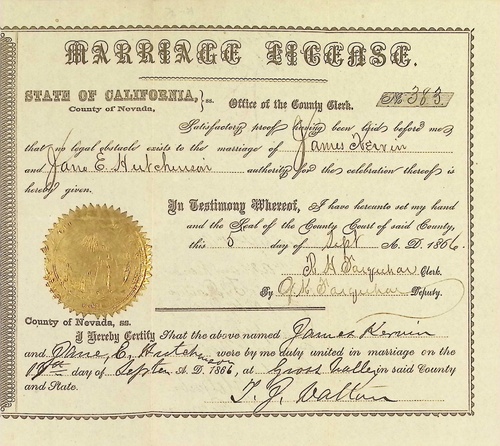 MARRIAGE LICENSE.
STATE OF CALIFORNIA, } ss.
County of Nevada,
Office of the County Clerk.
No. 383
Satisfactory proof having been laid before me
that no legal obstacle exists to the marriage of James Kerwin
and Jane E. Hutchinson authority for the celebration thereof is
hereby given.
In Testimony Whereof, I have hereunto set my hand
and the Seal of the County Court of said County,
this 5 day of Sept A. D. 1866.
R H Farquhar Clerk.
By Farquhar Deputy.
County of Nevada, ss.
I Hereby Certify That the above named James Kerwin
and Jane E. Hutchinson were by me duly united in marriage on the
day of Septem. A. D. 1866, at Grass Valley in said County
and State.
T. J. Walton